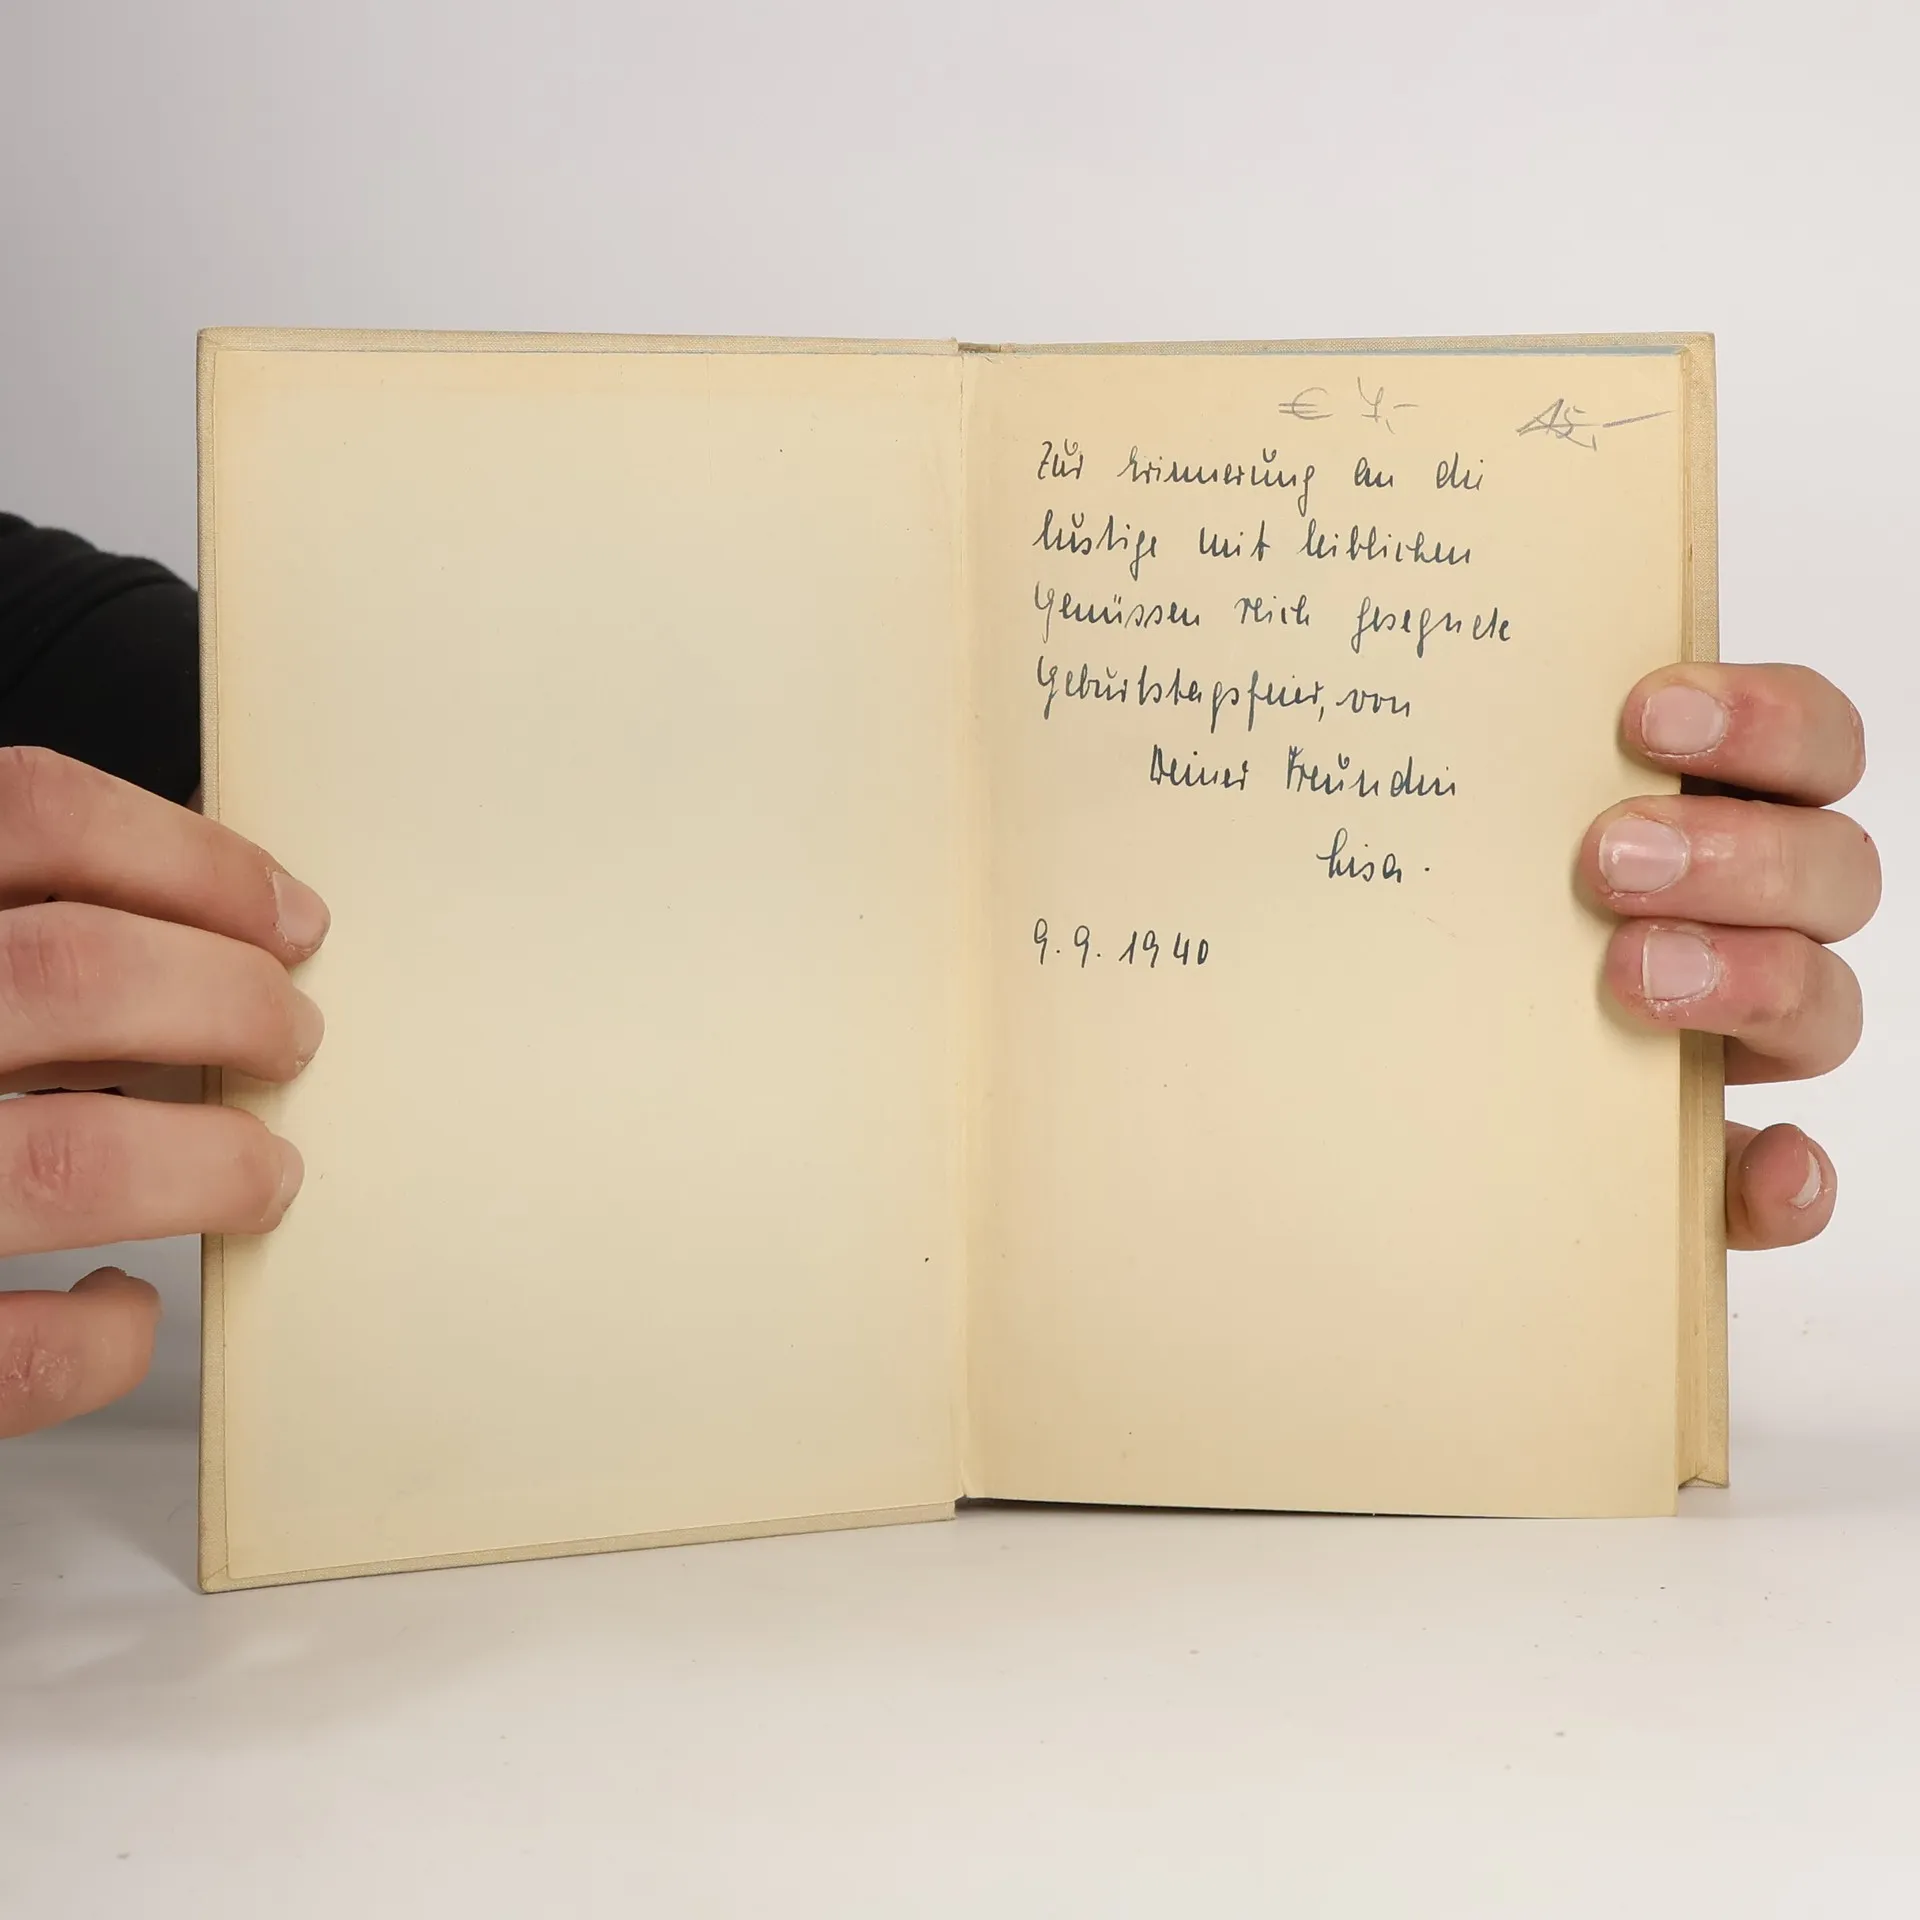 € 4,- 15,-
Zur Erinnerung an die
lustige mit leiblichen
Genüssen reich gesegnete
Geburtstagsfeier, von
Deiner Freundin
Lisa.
9.9.1940